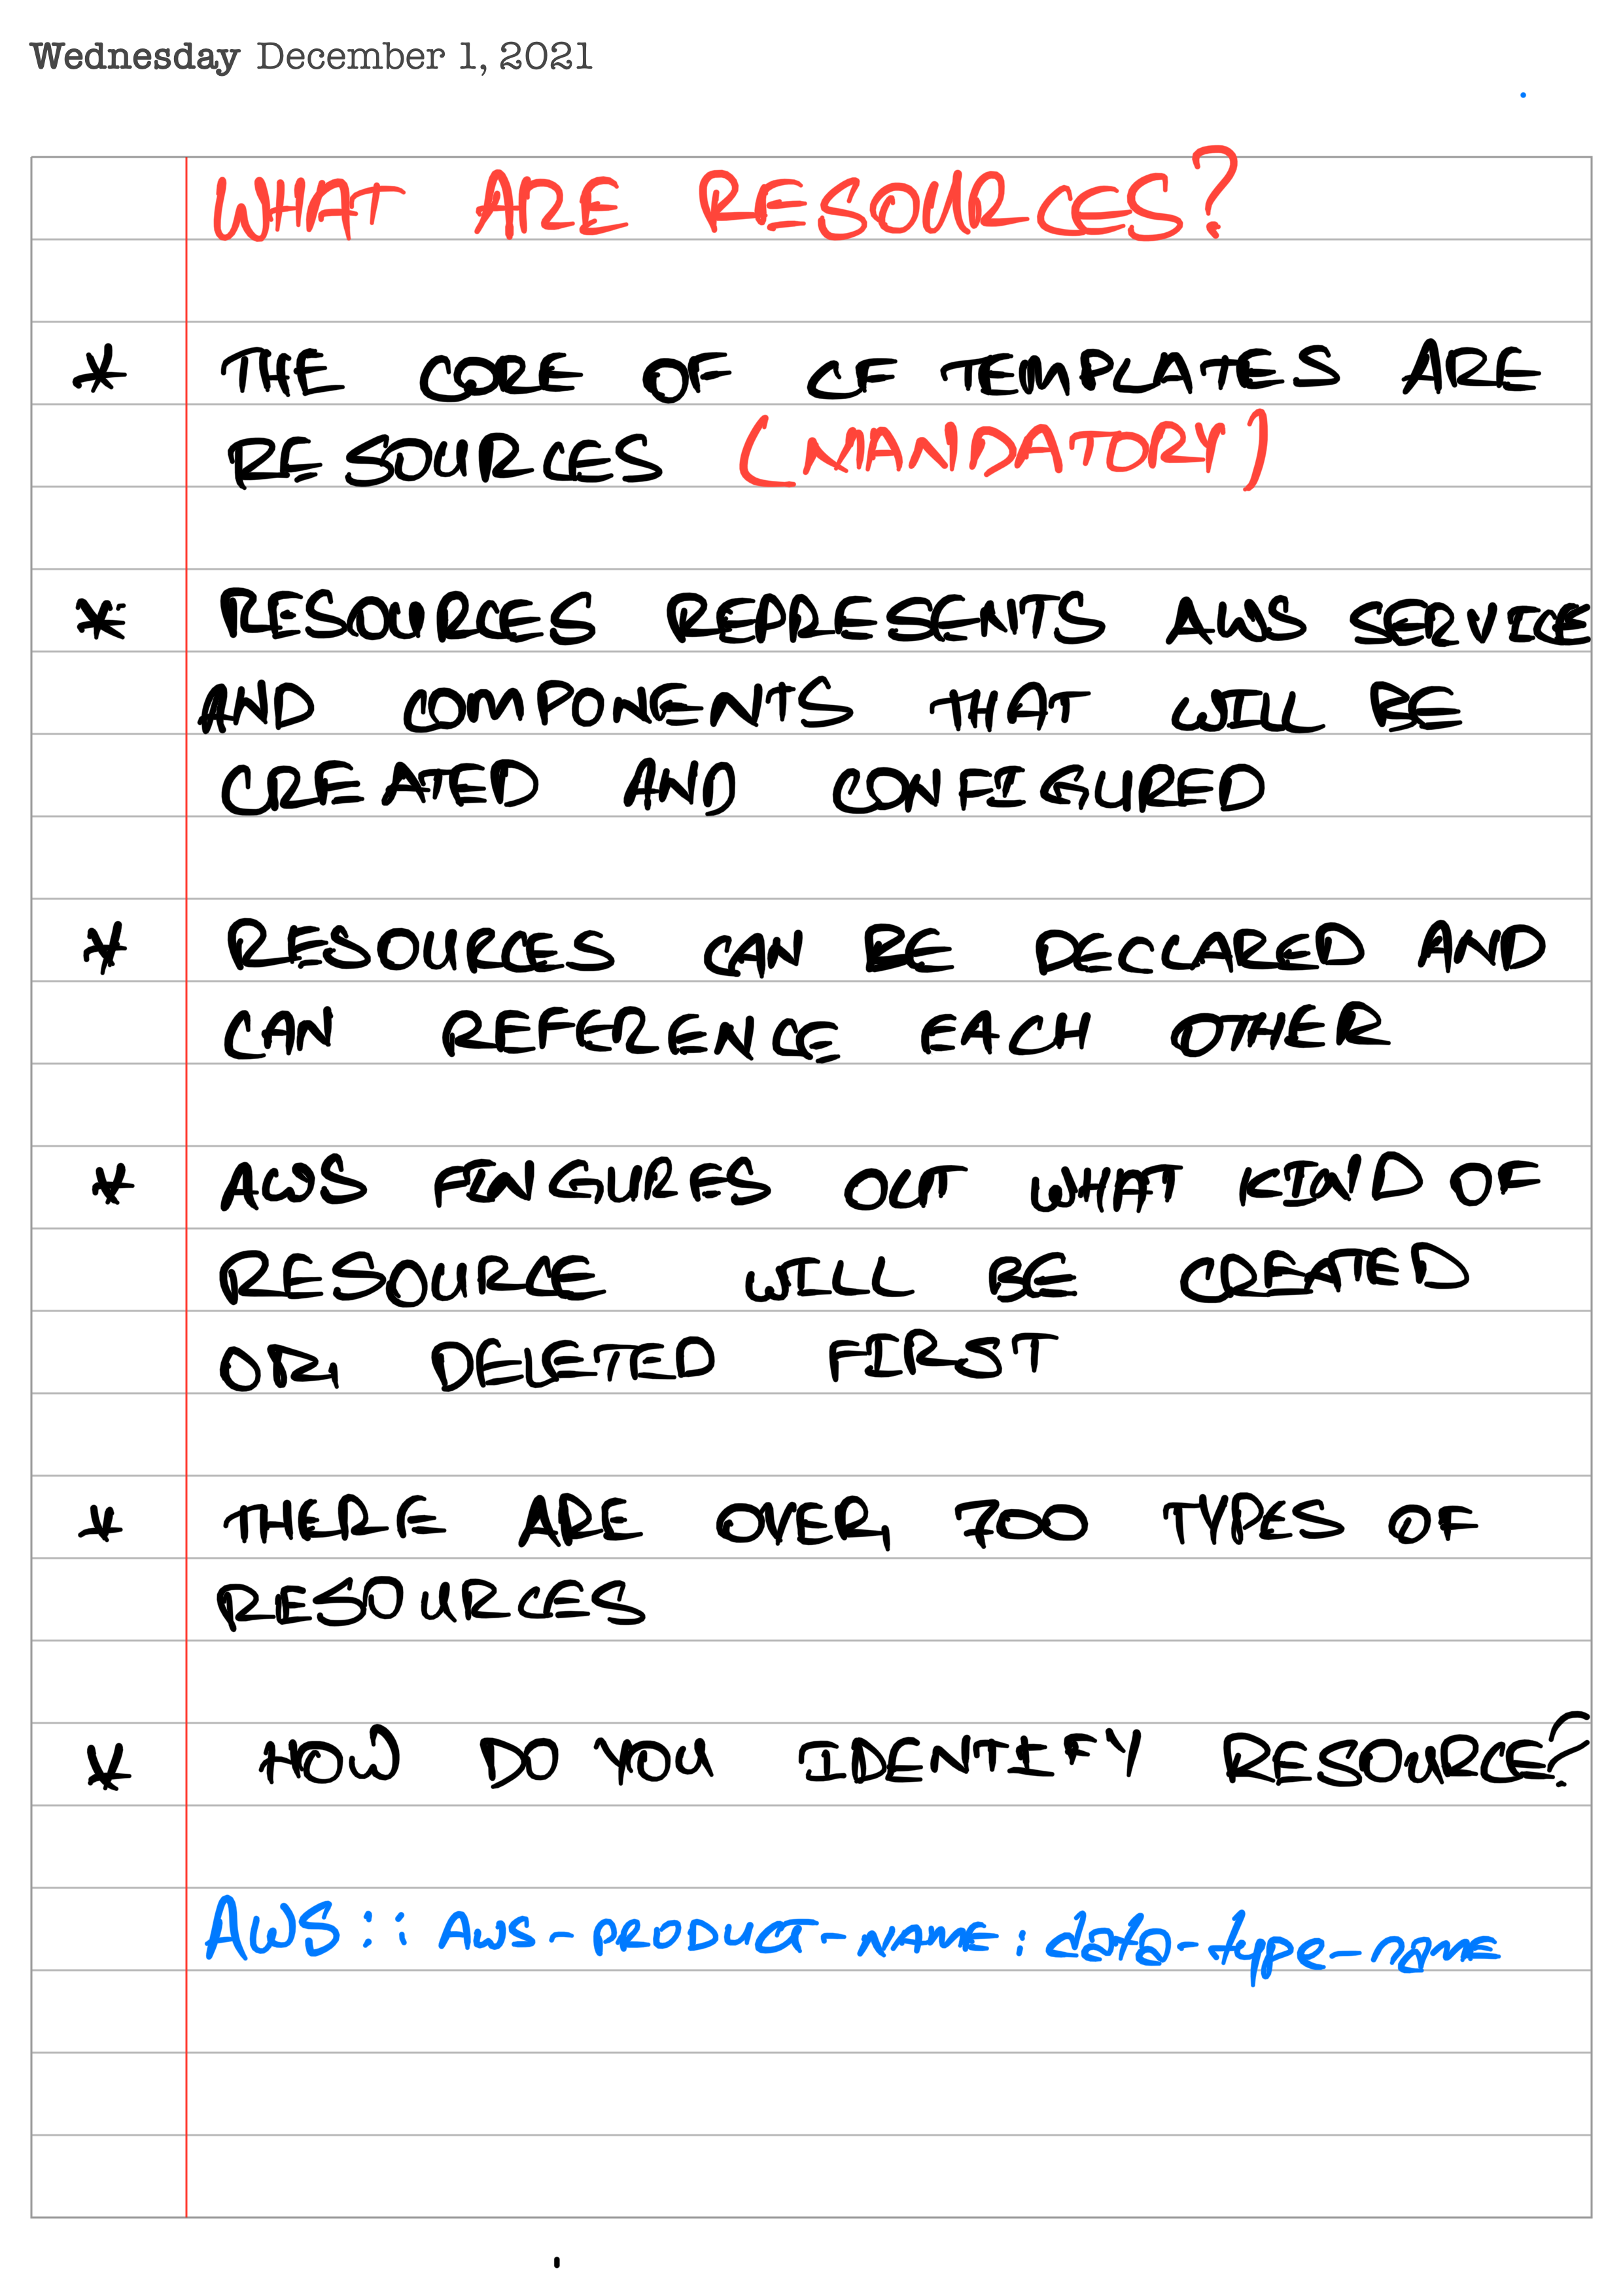 Wednesday December 1, 2021
WHAT ARE RESOURCES?
* THE CORE OF CF TEMPLATES ARE
RESOURCES (MANDATORY)
* RESOURCES REPRESENTS AWS SERVICE
AND COMPONENTS THAT WILL BE
CREATED AND CONFIGURED
* RESOURCES CAN BE DECLARED AND
CAN REFERENCE EACH OTHER
* AWS FINGURES OUT WHAT KIND OF
RESOURCE WILL BE CREATED
OR DELETED FIRST
* THERE ARE OVER 700 TYPES OF
RESOURCES
* HOW DO YOU IDENTIFY RESOURCE?
AWS :: AWS-PRODUCT-NAME: data-type-name